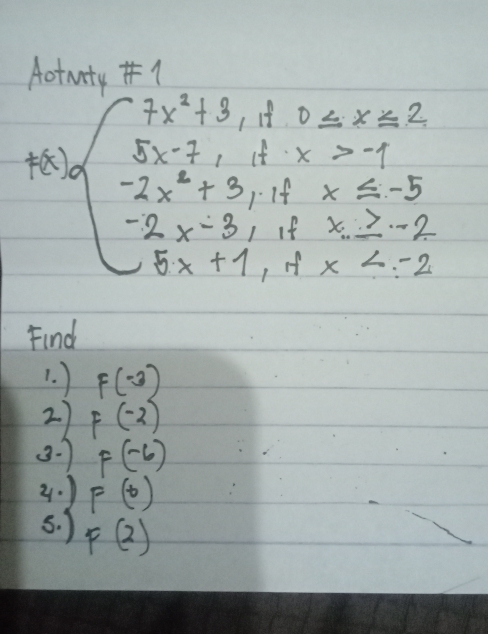 Activity #1
7x² + 3, if 0 ≤ x ≤ 2
f(x) 5x - 7, if x > -1
-2x² + 3, if x ≤ -5
-2x - 3, if x ≥ -2
5x + 1, if x < -2
Find
1.) F(-3)
2.) F(-2)
3.) F(-6)
4.) F
5.) F(2)